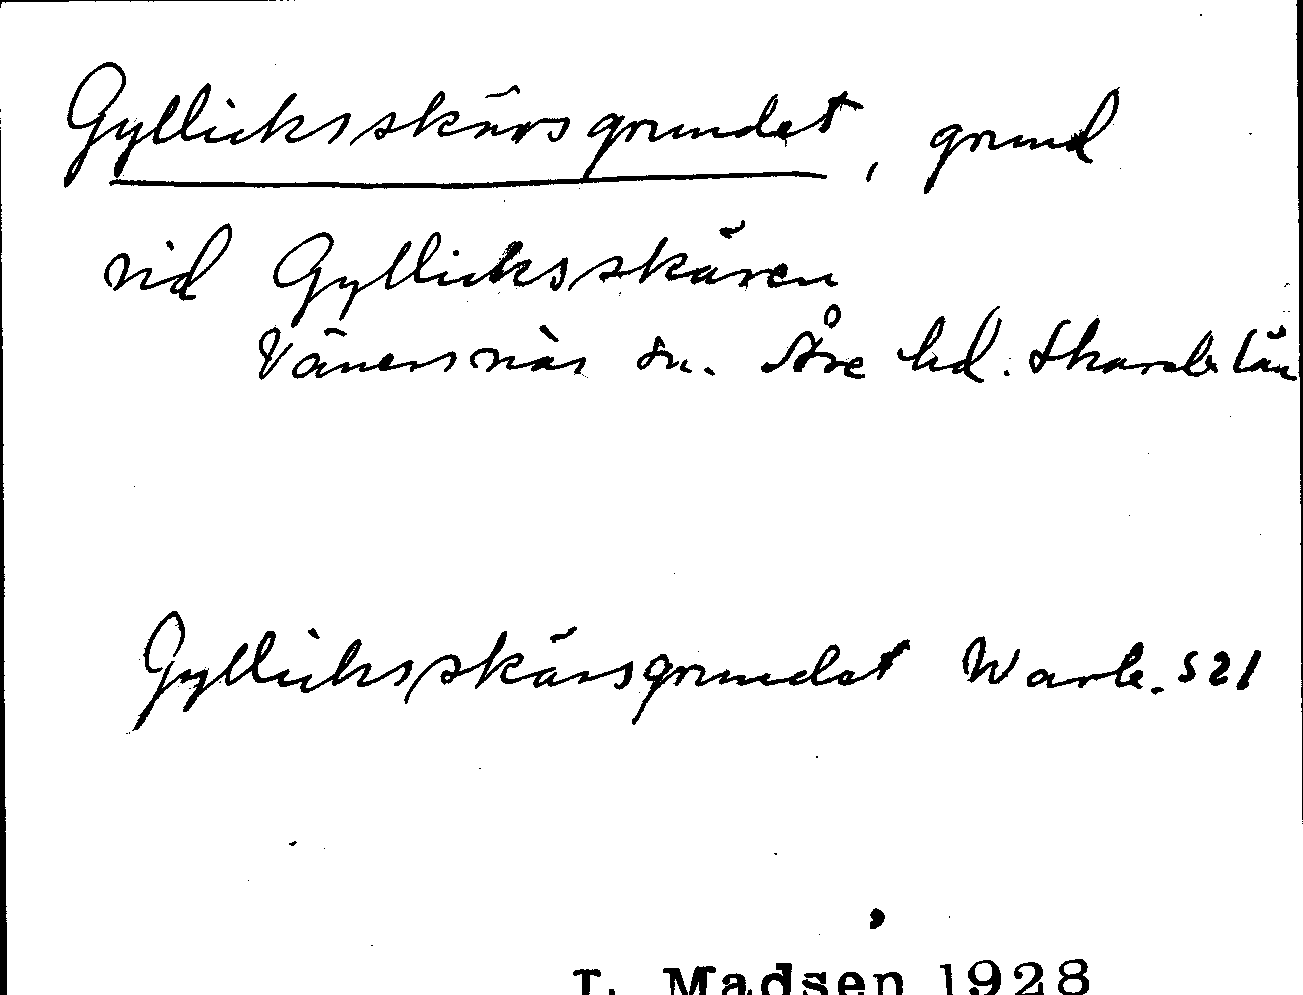 Gyllicksskärsgrundet, grund
vid Gyllicksskären
Vänersnäs sn. Åse hd. Skarab. län
Gyllicksskärsgrundet Warb. 521
Madsen 1928